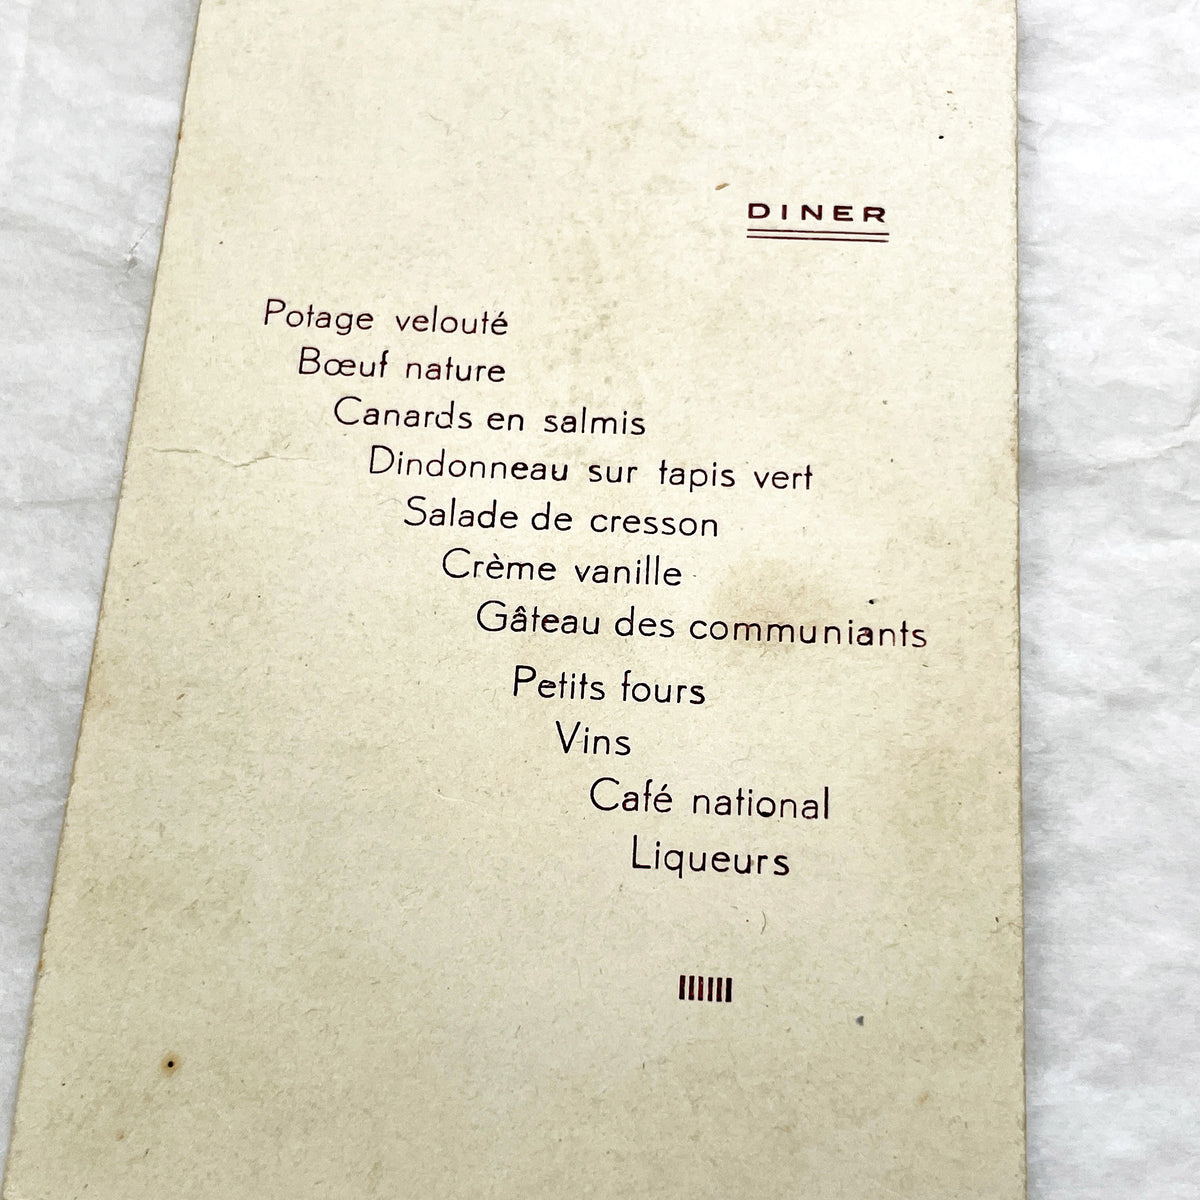 DINER
Potage velouté
Bœuf nature
Canards en salmis
Dindonneau sur tapis vert
Salade de cresson
Crème vanille
Gâteau des communiants
Petits fours
Vins
Café national
Liqueurs